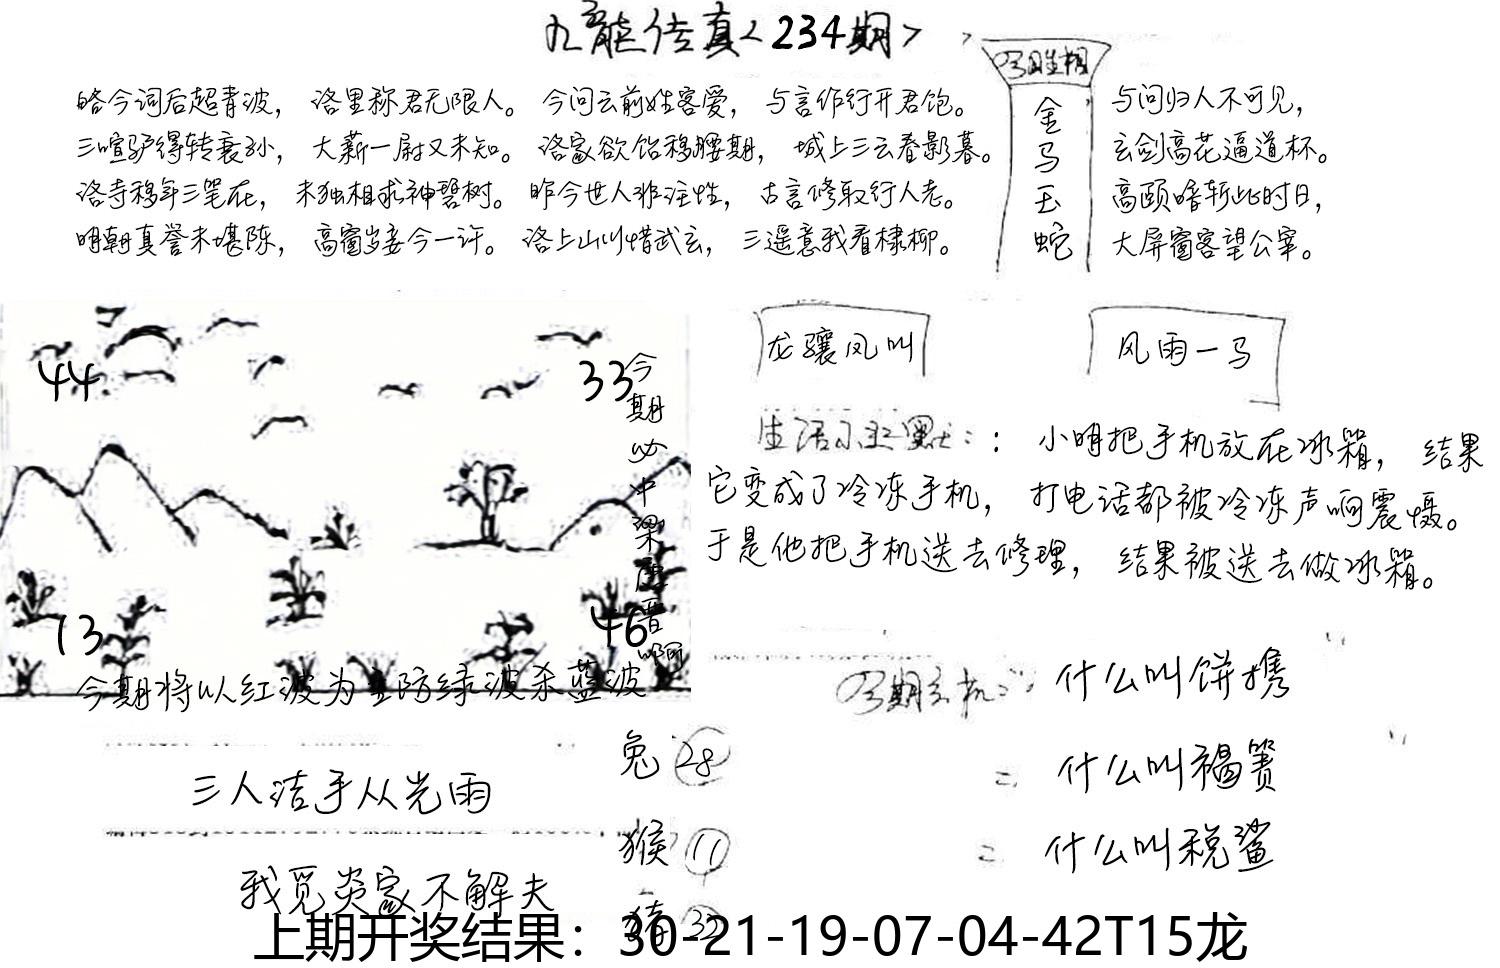 九龙传真<234期>
今期生相
金马玉蛇
略今词后超青波， 洛里称君无限人。 今问云前姓客爱， 与言作行开君饱。 与问归人不可见，
三喧驴得转衰孙， 大薪一尉又未知。 洛家欲饴移腰期， 城上三云春影暮。 玄剑高花逼道杯。
洛寺移年三笔在， 未独相求神碧树。 昨今世人非注性， 古言修取行人老。 高颐暗斩此时日，
明朝真誉未堪陈， 高窗岁妾今一许。 洛上山川惜武玄， 三遥意我看棣柳。 大屏窗客望公宰。
44
33
13
46
今期必中梁唐晋啊
今期将以红波为主防绿波杀蓝波
龙骧凤叫
风雨一马
生活小幽默：：小明把手机放在冰箱， 结果
它变成了冷冻手机， 打电话都被冷冻声响震慑。
于是他把手机送去修理， 结果被送去做冰箱。
今期玄机： 什么叫饼携
= 什么叫褐赛
= 什么叫税鲨
三人洁手从光雨
我觅炎家不解夫
兔 28
猴 11
猪 35
上期开奖结果：30-21-19-07-04-42T15龙